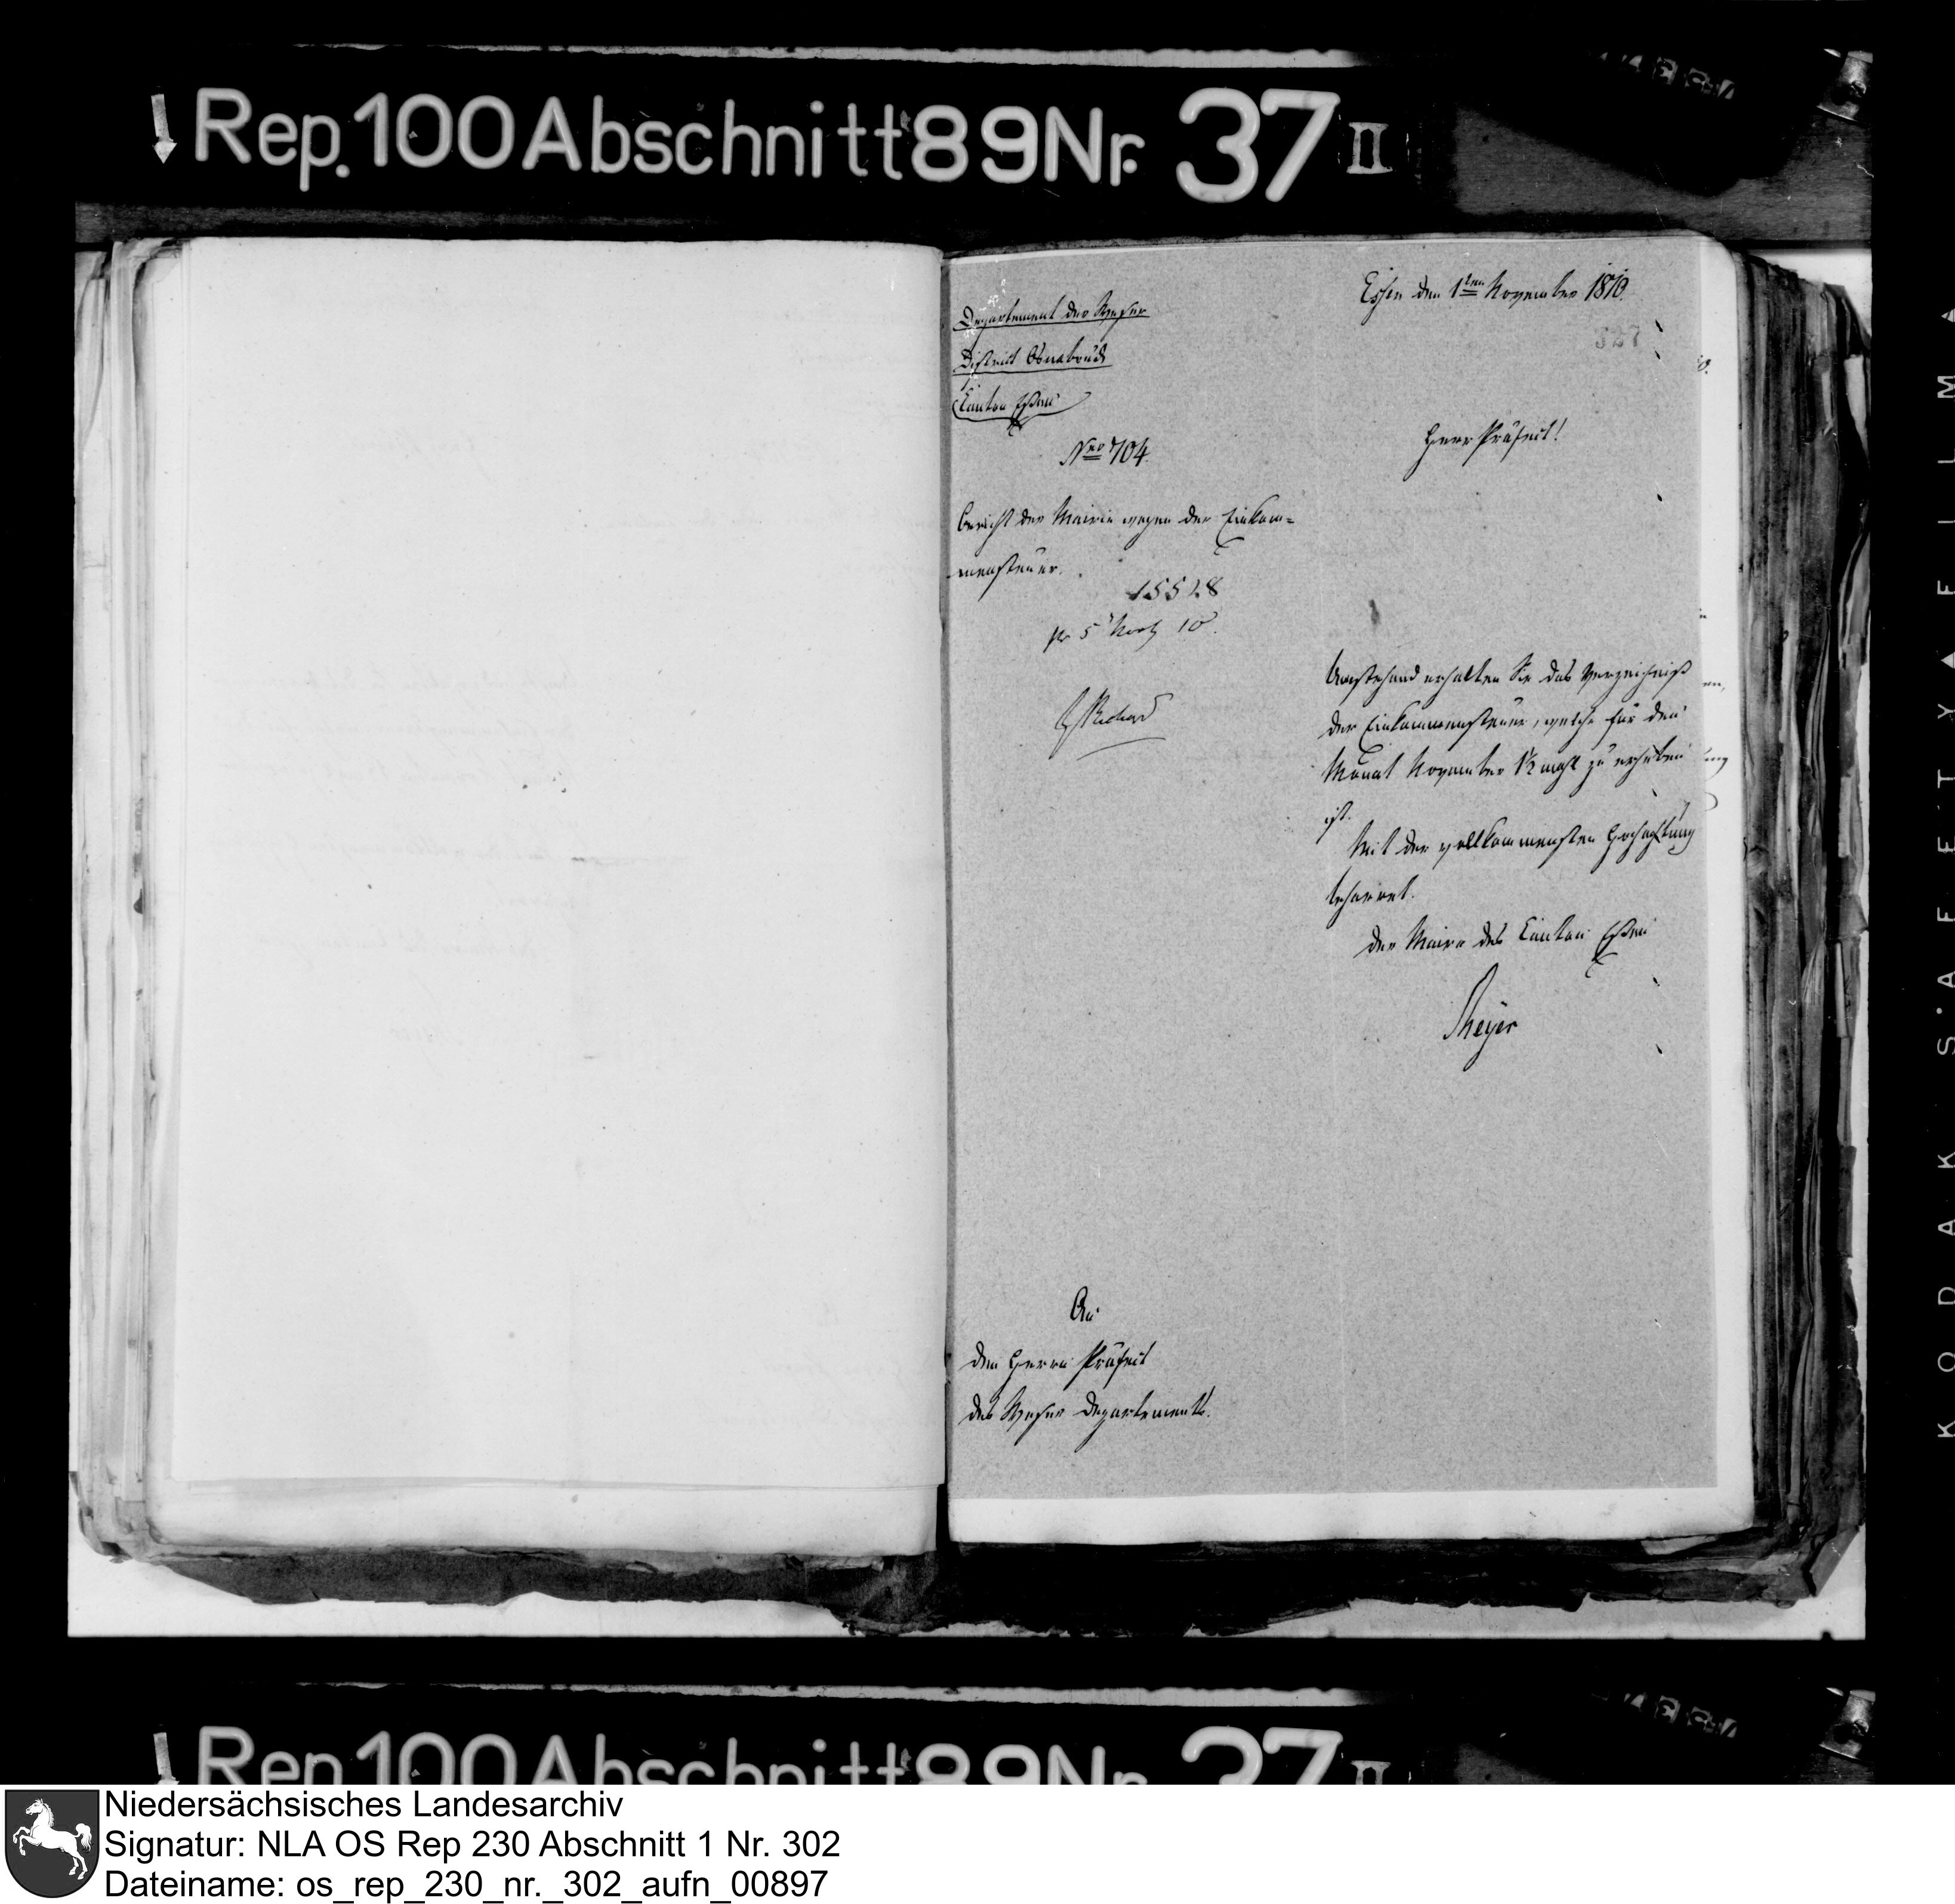 Rep. 100 Abschnitt 89 Nr. 37 II
Essen den 1ten November 1810.
Departement der Weser
District Osnabrück
Canton Essen
Nro 704.
Herr Präfect!
Bericht des Maire wegen der Einkom=
mensteuer.
15528
pr 5 Nov 10
Umstehend erhalten Sie das Verzeichniß
der Einkommensteuer, welche für den
Monat November 1½ mahl zu erheben
ist.
Mit der vollkommensten Hochachtung
beharret.
der Maire des Canton Essen
Meyer
An
den Herrn Präfect
des Weser Departements.
Rep. 100 Abschnitt 89 Nr. 37 II
KODAK SAFETY FILM
Niedersächsisches Landesarchiv
Signatur: NLA OS Rep 230 Abschnitt 1 Nr. 302
Dateiname: os_rep_230_nr._302_aufn_00897